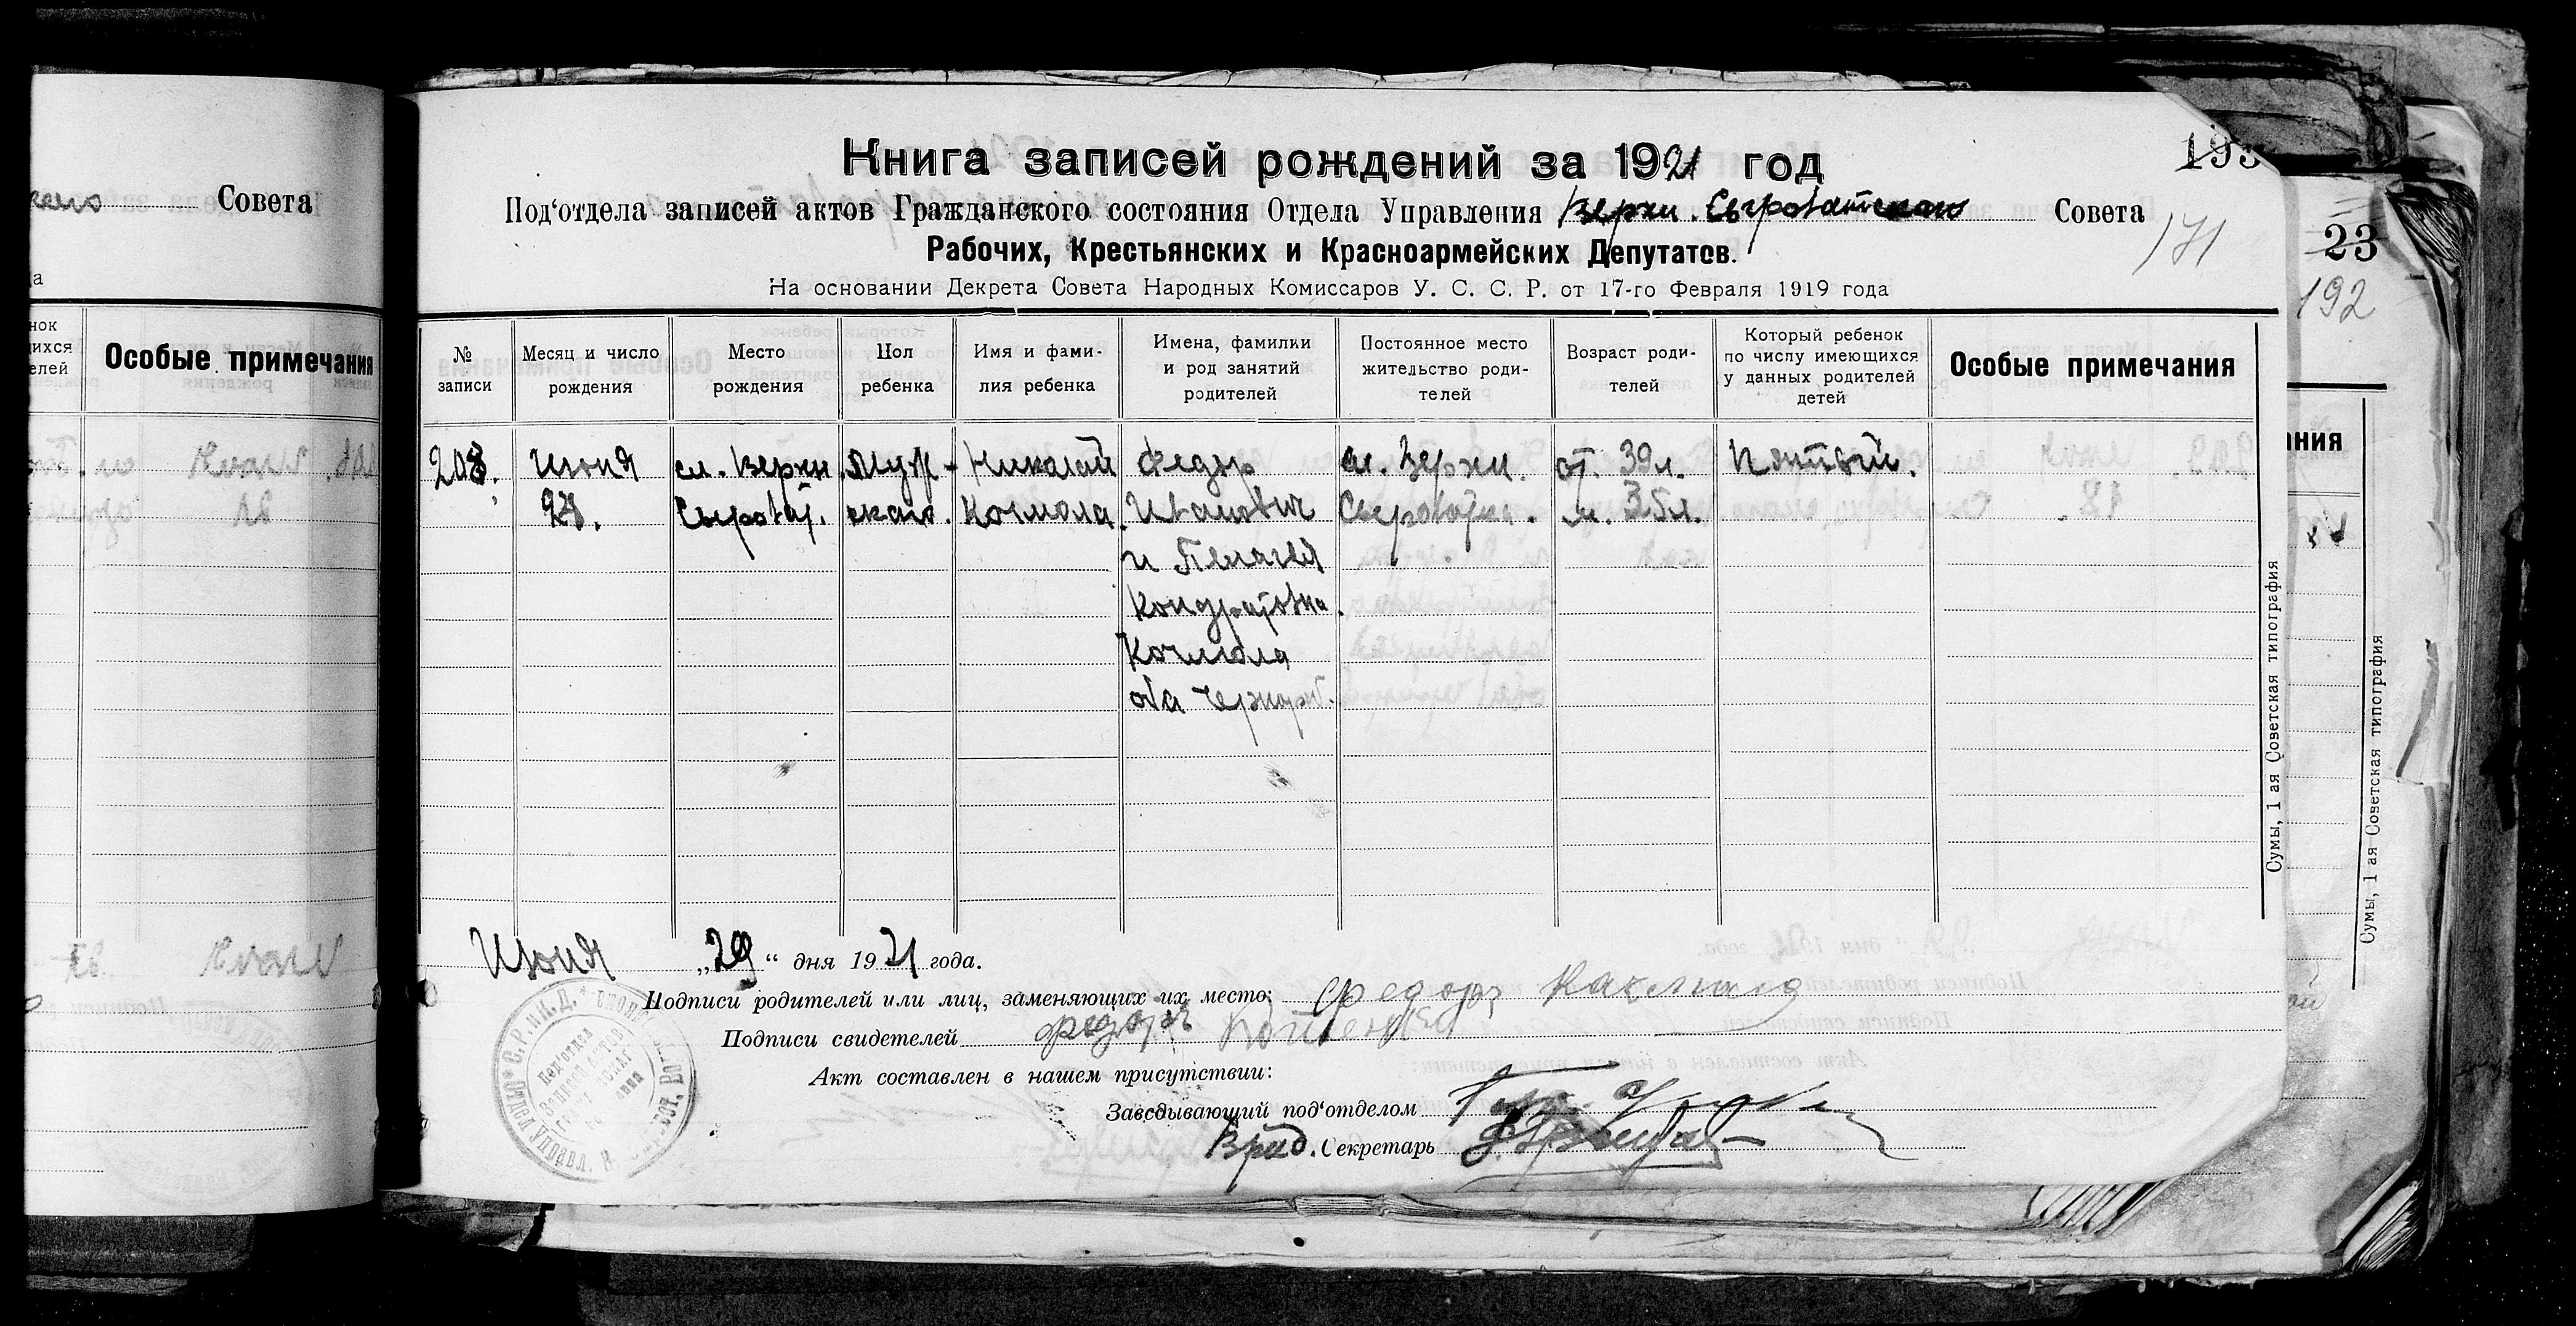 Совета
Особые примечания
Книга записей рождений за 1921 год
Под‘отдела записей актов Гражданского состояния Отдела Управления Верхн. Сыроватского Совета
Рабочих, Крестьянских и Красноармейских Депутатов.
На основании Декрета Совета Народных Комиссаров У. С. С. Р. от 17-го Февраля 1919 года
193
171
23
192
№ записи
Месяц и число рождения
Место рождения
Пол ребенка
Имя и фами-
лия ребенка
Имена, фамилии
и род занятий
родителей
Постоянное место
жительство роди-
телей
Возраст роди-
телей
Который ребенок
по числу имеющихся
у данных родителей
детей
Особые примечания
208.
Июня
сл. Верхн.
Муж-
Николай
Федор
сл. Верхн.
от. 39 л.
Пятый.
Сыроват.
ского.
Кочмола.
Иванович
Сыроватка.
м. 35 л.
и Пелагея
Кондратовна
Кочмола
оба
Июня „29“ дня 1921 года.
Подписи родителей или лиц, заменяющих их место:
Подписи свидетелей
Акт составлен в нашем присутствии:
Заведывающий под‘отделом
Врид. Секретарь
Сумы, 1 ая Советская типография
Сумы, 1 ая Советская типография